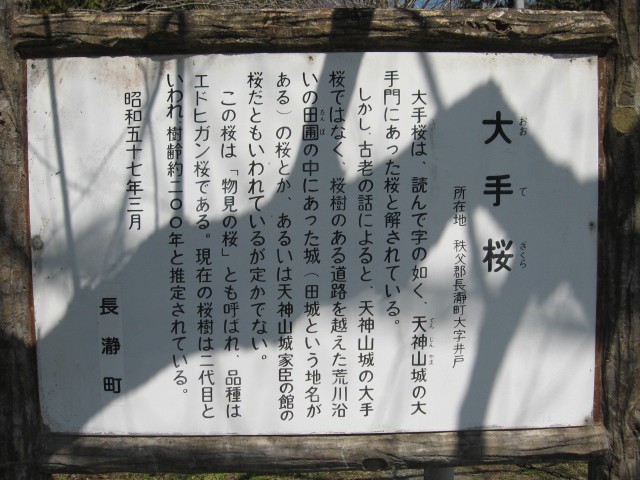 大手桜
おお て ざくら
所在地 秩父郡長瀞町大字井戸
大手桜は、読んで字の如く、天神山城の大
てん じん やま
手門にあった桜と解されている。
しかし、古老の話によると、天神山城の大手
桜ではなく、桜樹のある道路を越えた荒川沿
いの田圃の中にあった城（田城という地名が
たん ぼ
ある）の桜とか、あるいは天神山城家臣の館の
桜だともいわれているが定かでない。
この桜は「物見の桜」とも呼ばれ、品種は
エドヒガン桜である。現在の桜樹は二代目と
いわれ、樹齢約二〇〇年と推定されている。
昭和五十七年三月
長瀞町